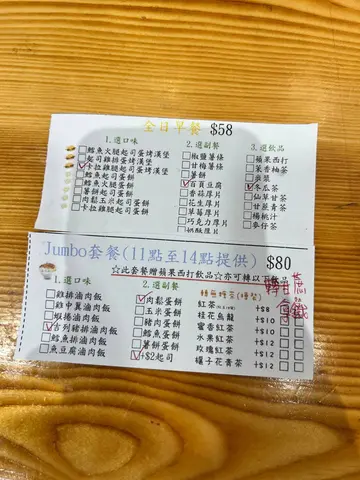 全日早餐 $58
1.選口味 2.選副餐 3.選飲品
鱈魚火腿起司蛋烤漢堡
起司雞排蛋烤漢堡
卡拉雞起司蛋烤漢堡
鱈魚起司蛋餅
鱈魚火腿蛋餅
薯餅起司蛋餅
肉鬆玉米起司蛋餅
卡拉雞起司蛋餅
椒鹽薯條
甘梅薯條
薯餅
百頁豆腐
香蒜厚片
花生厚片
草莓厚片
巧克力厚片
奶酥厚片
蘋果西打
茉香柚茶
冬瓜茶
仙草甘茶
甘蔗青茶
楊桃汁
麥仔茶
Jumbo套餐(11點至14點提供) $80
☆此套餐贈蘋果西打飲品☆亦可轉以下飲品
1.選口味 2.選副餐
雞排滷肉飯
雞中翼滷肉飯
蝦捲滷肉飯
吉列豬排滷肉飯
鱈魚排滷肉飯
魚豆腐滷肉飯
肉鬆蛋餅
玉米蛋餅
豬肉蛋餅
鱈魚蛋餅
薯餅蛋餅
+$2起司
紅茶 +$8
桂花烏龍 +$10
蜜香紅茶 +$10
水果紅茶 +$12
玫瑰紅茶 +$12
橘子花青茶 +$12